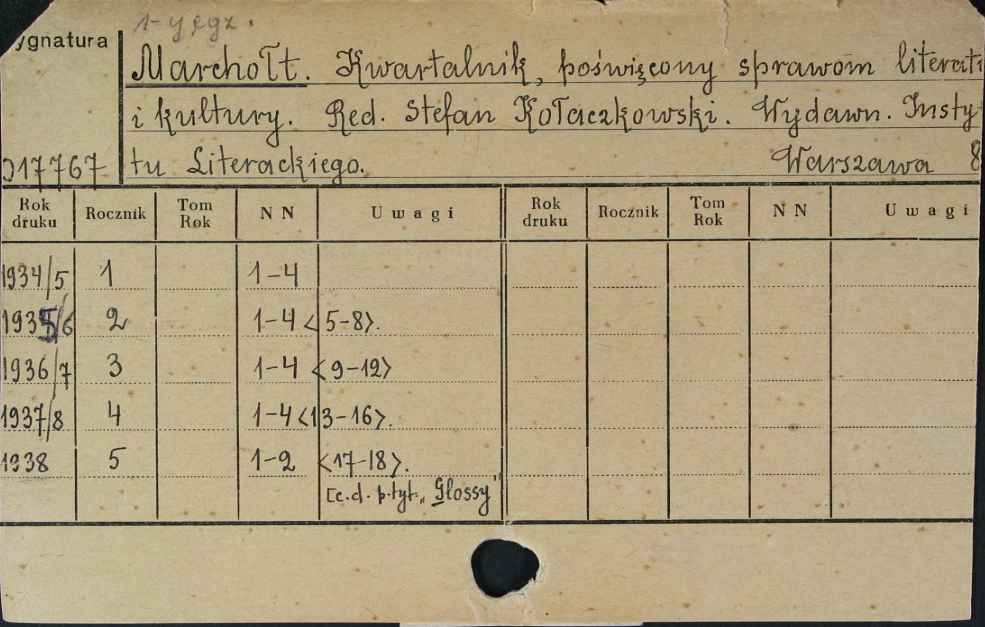 1-y egz.
ygnatura
Marchołt. Kwartalnik, poświęcony sprawom literatu
i kultury. Red. Stefan Kołaczkowski. Wydawn. Insty-
017767 tu Literackiego. Warszawa 8
Rok druku Rocznik Tom Rok NN Uwagi Rok druku Rocznik Tom Rok NN Uwagi
1934/5 1 1-4
1935/6 2 1-4 <5-8>.
1936/7 3 1-4 <9-12>
1937/8 4 1-4 <13-16>.
1938 5 1-2 <17-18>.
[c.d. p.tyt. „Glossy"